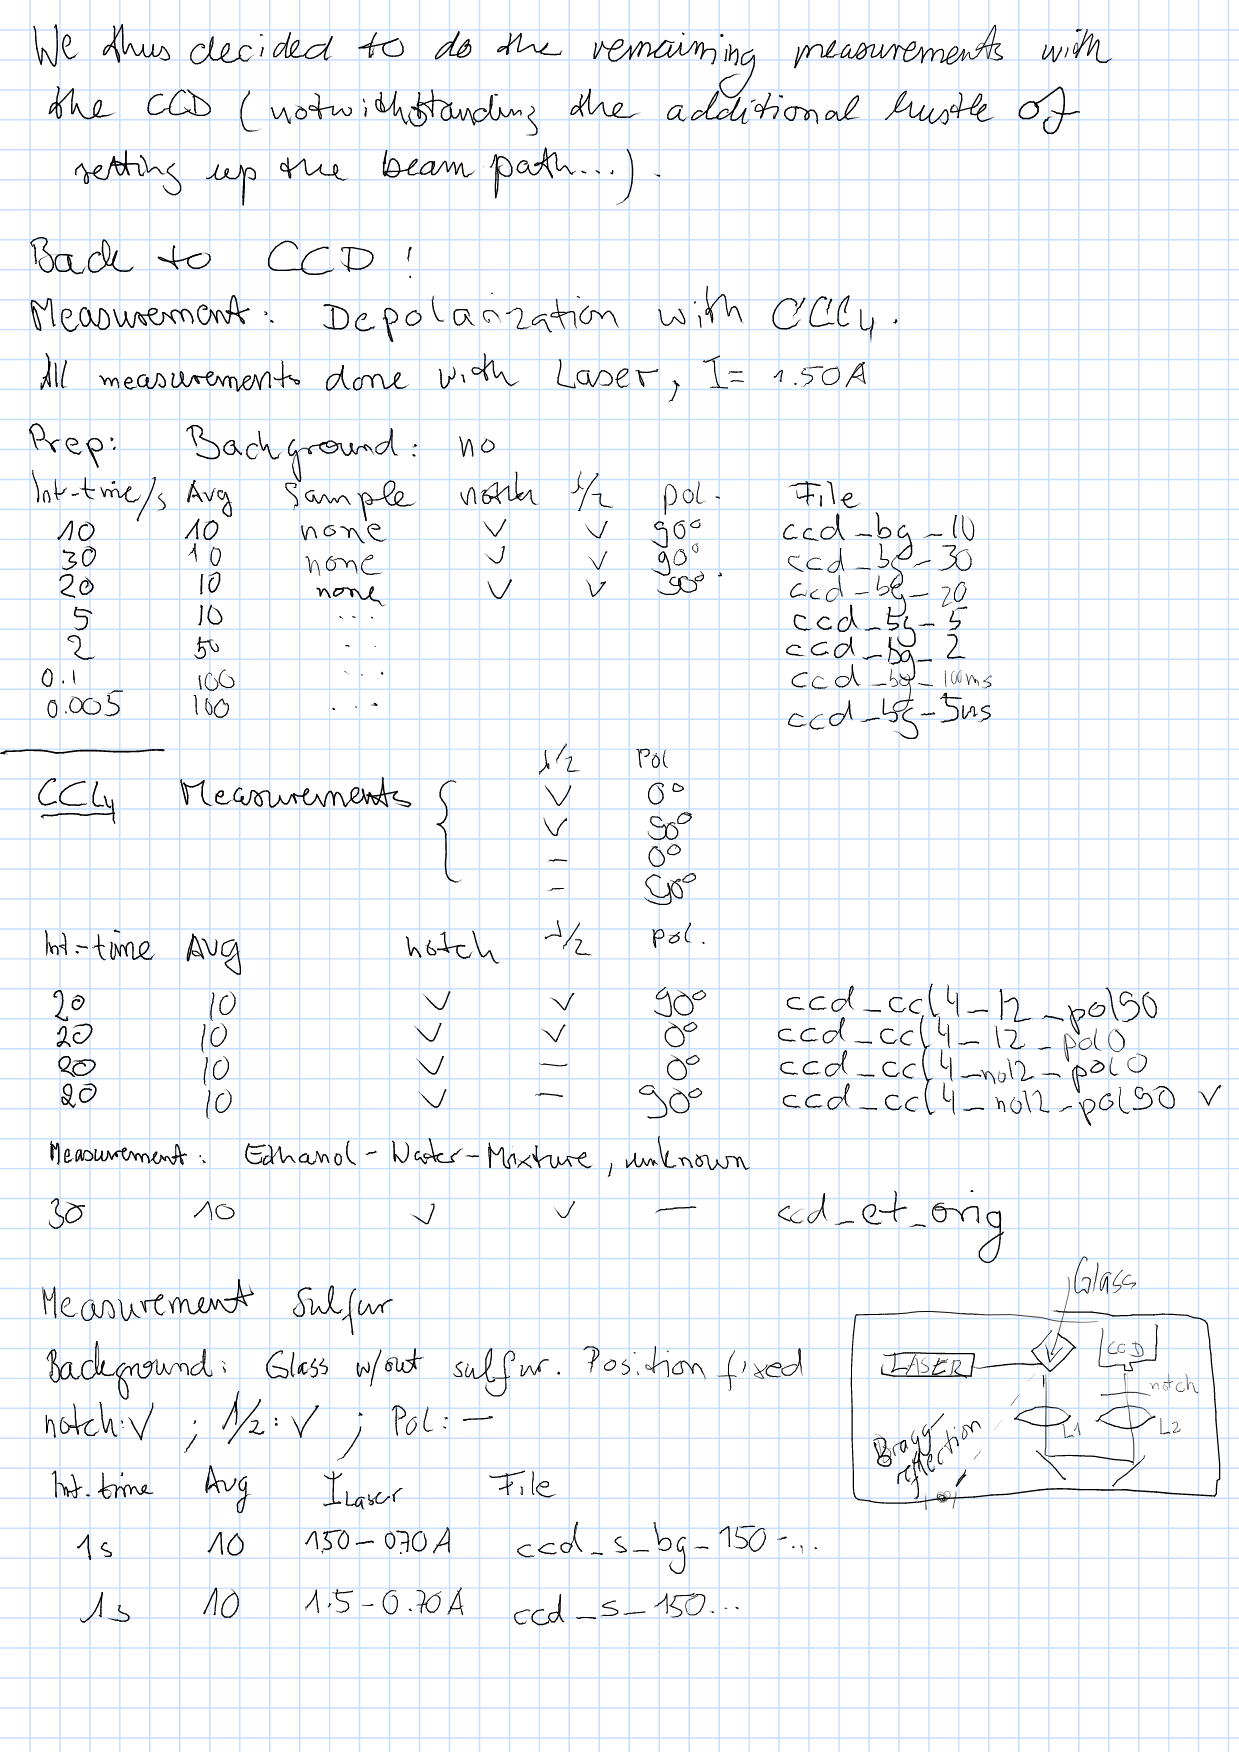 We thus decided to do the remaining measurements with
the CCD (notwithstanding the additional hustle of
setting up the beam path...).
Back to CCD!
Measurement: Depolarization with CCl4.
All measurements done with Laser, I= 1.50A
Prep: Background: no
Int-time/s Avg Sample notch λ/2 pol. File
10 10 none ✓ ✓ 90° ccd_bg_10
30 10 none ✓ ✓ 90° ccd_bg_30
20 10 none ✓ ✓ 90°. ccd_bg_20
5 10 ... ccd_bg_5
2 50 ... ccd_bg_2
0.1 100 ... ccd_bg_100ms
0.005 100 ... ccd_bg_5ms
λ/2 Pol
CCL4 Measurements { ✓ 0°
✓ 90°
— 0°
— 90°
Int.-time Avg notch λ/2 pol.
20 10 ✓ ✓ 90° ccd_ccl4_l2_pol90
20 10 ✓ ✓ 0° ccd_ccl4_l2_pol0
20 10 ✓ — 0° ccd_ccl4_nol2_pol0
20 10 ✓ — 90° ccd_ccl4_nol2_pol90 ✓
Measurement: Ethanol-Water-Mixture, unknown
30 10 ✓ ✓ — ccd_et_orig
Measurement Sulfur
Background: Glass w/out sulfur. Position fixed
notch: ✓ ; λ/2: ✓ ; Pol: —
Int.time Avg I Laser File
1s 10 1.50-0.70A ccd_s_bg_150-...
1s 10 1.5-0.70A ccd_s_150...
Glass
LASER
CCD
notch
L1 L2
Bragg-
reflection